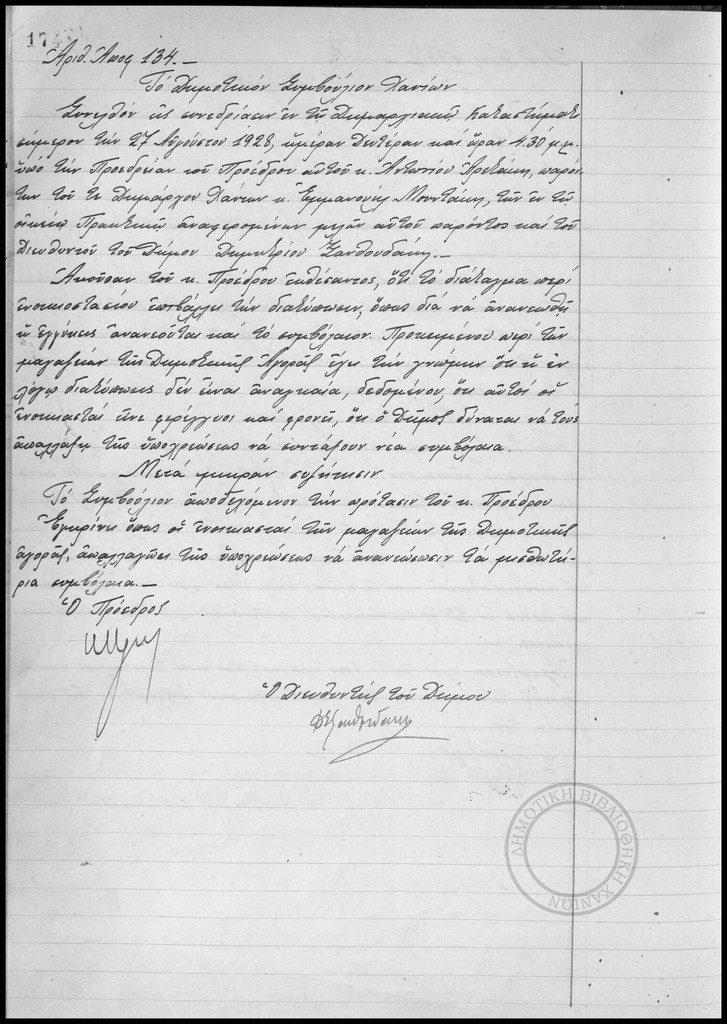 174
Ἀριθ. Ἀποφ. 134.—
Τό Δημοτικόν Συμβούλιον Χανίων
Συνελθόν εἰς συνεδρίασιν ἐν τῷ Δημαρχιακῷ Καταστήματι
σήμερον τήν 27 Αὐγούστου 1928, ἡμέραν Δευτέραν καί ὥραν 4.30 μ.μ.
ὑπό τήν Προεδρείαν τοῦ Προέδρου αὐτοῦ κ. Ἀντωνίου παρόν
των τοῦ τε Δημάρχου Χανίων κ. Ἐμμανουήλ Μουντάκη, τῶν ἐν τῷ
οἰκείῳ Πρακτικῷ ἀναφερομένων μελῶν αὐτοῦ παρόντος καί τοῦ
Διευθυντοῦ τοῦ Δήμου Δημητρίου Ξανθουδάκη.—
Ἀκοῦσαν τοῦ κ. Προέδρου ἐκθέσαντος, ὅτι τό διάταγμα περί
ἐνοικιοστασίου ἐπιβάλλει τήν διατύπωσιν, ὅπως διά νά ἀνανεωθῇ
ἡ ἐγγύησις ἀνανεοῦται καί τό συμβόλαιον. Προκειμένου περί τῶν
μαγαζείων τῆς Δημοτικῆς Ἀγορᾶς ἔχει τήν γνώμην ὅτι ἡ ἐν
λόγῳ διατύπωσις δέν εἶναι ἀναγκαία, δεδομένου, ὅτι αὐτοί οἱ
ἐνοικιασταί εἶνε φερέγγυοι καί φρονεῖ, ὅτι ὁ Δῆμος δύναται νά τούς
ἀπαλλάξῃ τῆς ὑποχρεώσεως νά συντάξουν νέα συμβόλαια.
Μετά μικράν συζήτησιν
Τό Συμβούλιον ἀποδεχόμενον τήν πρότασιν τοῦ κ. Προέδρου
Ἐγκρίνει ὅπως οἱ ἐνοικιασταί τῶν μαγαζείων τῆς Δημοτικῆς
ἀγορᾶς, ἀπαλλαγῶσι τῆς ὑποχρεώσεως νά ἀνανεώσωσιν τά μισθωτή-
ρια συμβόλαια.—
Ὁ Πρόεδρος
Ὁ Διευθυντής τοῦ Δήμου
ΔΞανθουδάκης
ΔΗΜΟΤΙΚΗ ΒΙΒΛΙΟΘΗΚΗ ΧΑΝΙΩΝ